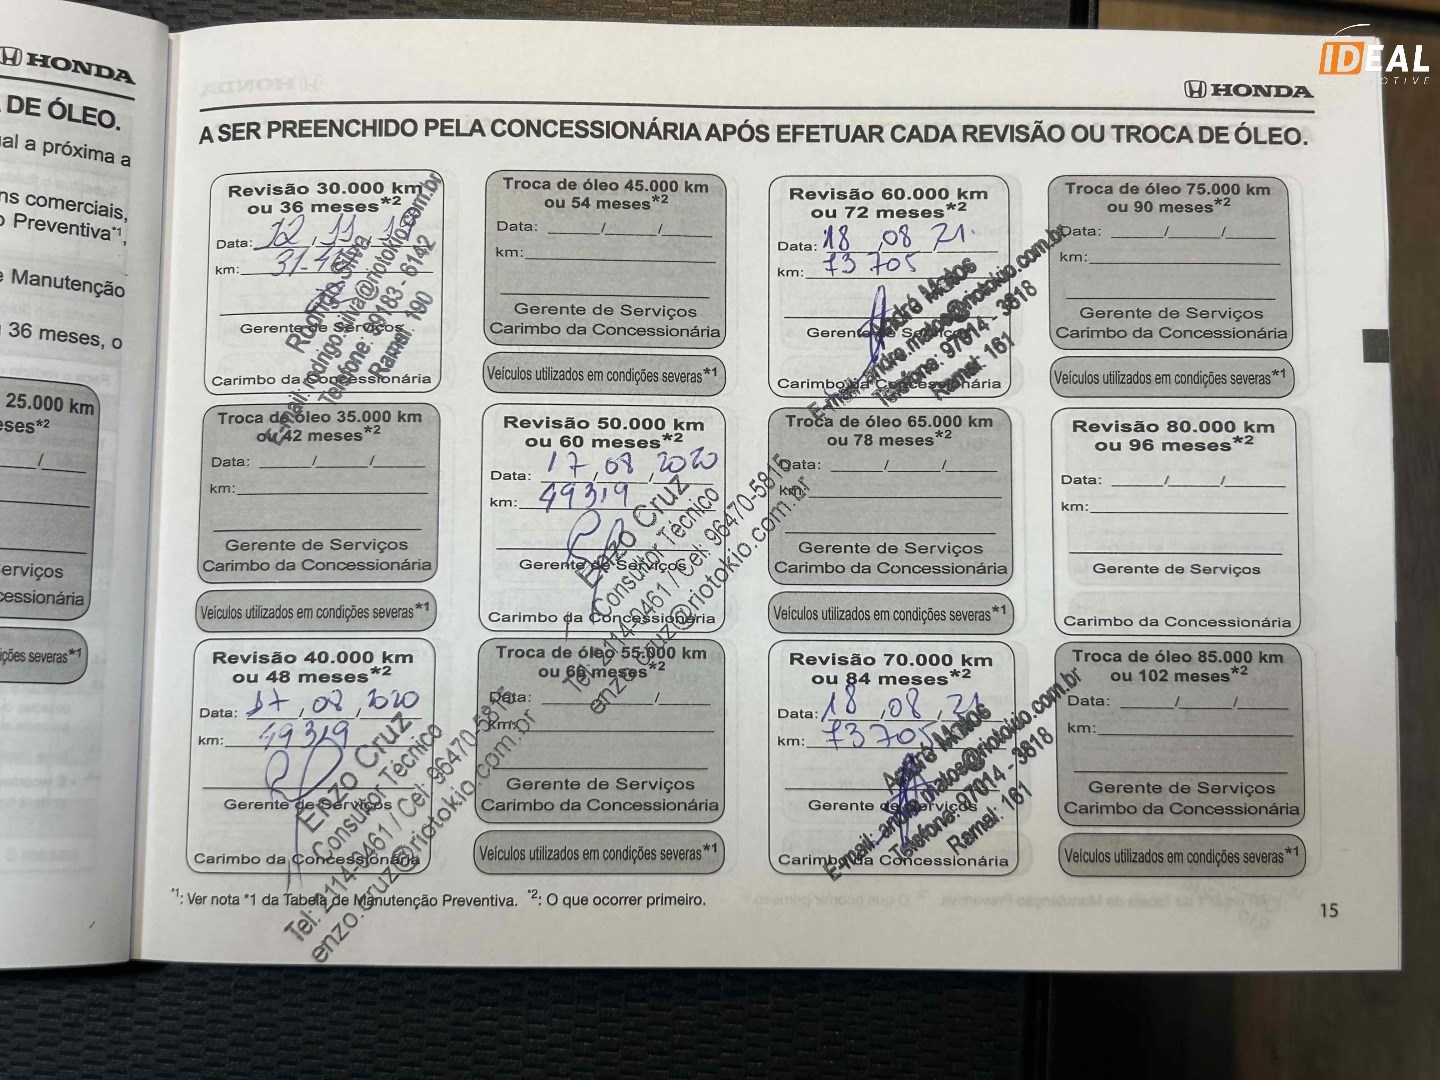 HONDA
DE ÓLEO.
al a próxima a
ns comerciais,
Preventiva*1,
Manutenção
36 meses, o
25.000 km
ses*2
erviços
cessionária
ções severas*1
IDEAL
HONDA
A SER PREENCHIDO PELA CONCESSIONÁRIA APÓS EFETUAR CADA REVISÃO OU TROCA DE ÓLEO.
Revisão 30.000 km
ou 36 meses*2
Data: 12 / 11 /
km:
Gerente de Serviços
Carimbo da Concessionária
Rodrigo Silva
E-mail: rodrigo.silva@riotokio.com.br
Telefone: 99183 - 6142
Ramal: 190
Troca de óleo 35.000 km
ou 42 meses*2
Data: ____/____/____
km:
Gerente de Serviços
Carimbo da Concessionária
Veículos utilizados em condições severas*1
Revisão 40.000 km
ou 48 meses*2
Data: 17 / 08 / 2020
km: 49319
Gerente de Serviços
Carimbo da Concessionária
Enzo Cruz
Consultor Técnico
Tel: 2114-0461 / Cel: 96470-5815
enzo.cruz@riotokio.com.br
Troca de óleo 45.000 km
ou 54 meses*2
Data: ____/____/____
km:
Gerente de Serviços
Carimbo da Concessionária
Veículos utilizados em condições severas*1
Revisão 50.000 km
ou 60 meses*2
Data: 17 / 08 / 2020
km: 49319
Gerente de Serviços
Carimbo da Concessionária
Enzo Cruz
Consultor Técnico
Tel: 2114-0461 / Cel: 96470-5815
enzo.cruz@riotokio.com.br
Troca de óleo 55.000 km
ou 66 meses*2
Data: ____/____/____
km:
Gerente de Serviços
Carimbo da Concessionária
Veículos utilizados em condições severas*1
Revisão 60.000 km
ou 72 meses*2
Data: 18 / 08 / 21
km: 73 705
Gerente de Serviços
Carimbo da Concessionária
André Matos
E-mail: andre.matos@riotokio.com.br
Telefone: 97014 - 3818
Ramal: 161
Troca de óleo 65.000 km
ou 78 meses*2
Data: ____/____/____
km:
Gerente de Serviços
Carimbo da Concessionária
Veículos utilizados em condições severas*1
Revisão 70.000 km
ou 84 meses*2
Data: 18 / 08 / 21
km: 73 705
Gerente de Serviços
Carimbo da Concessionária
André Matos
E-mail: andre.matos@riotokio.com.br
Telefone: 97014 - 3818
Ramal: 161
Troca de óleo 75.000 km
ou 90 meses*2
Data: ____/____/____
km:
Gerente de Serviços
Carimbo da Concessionária
Veículos utilizados em condições severas*1
Revisão 80.000 km
ou 96 meses*2
Data: ____/____/____
km:
Gerente de Serviços
Carimbo da Concessionária
Troca de óleo 85.000 km
ou 102 meses*2
Data: ____/____/____
km:
Gerente de Serviços
Carimbo da Concessionária
Veículos utilizados em condições severas*1
*1: Ver nota *1 da Tabela de Manutenção Preventiva. *2: O que ocorrer primeiro.
15